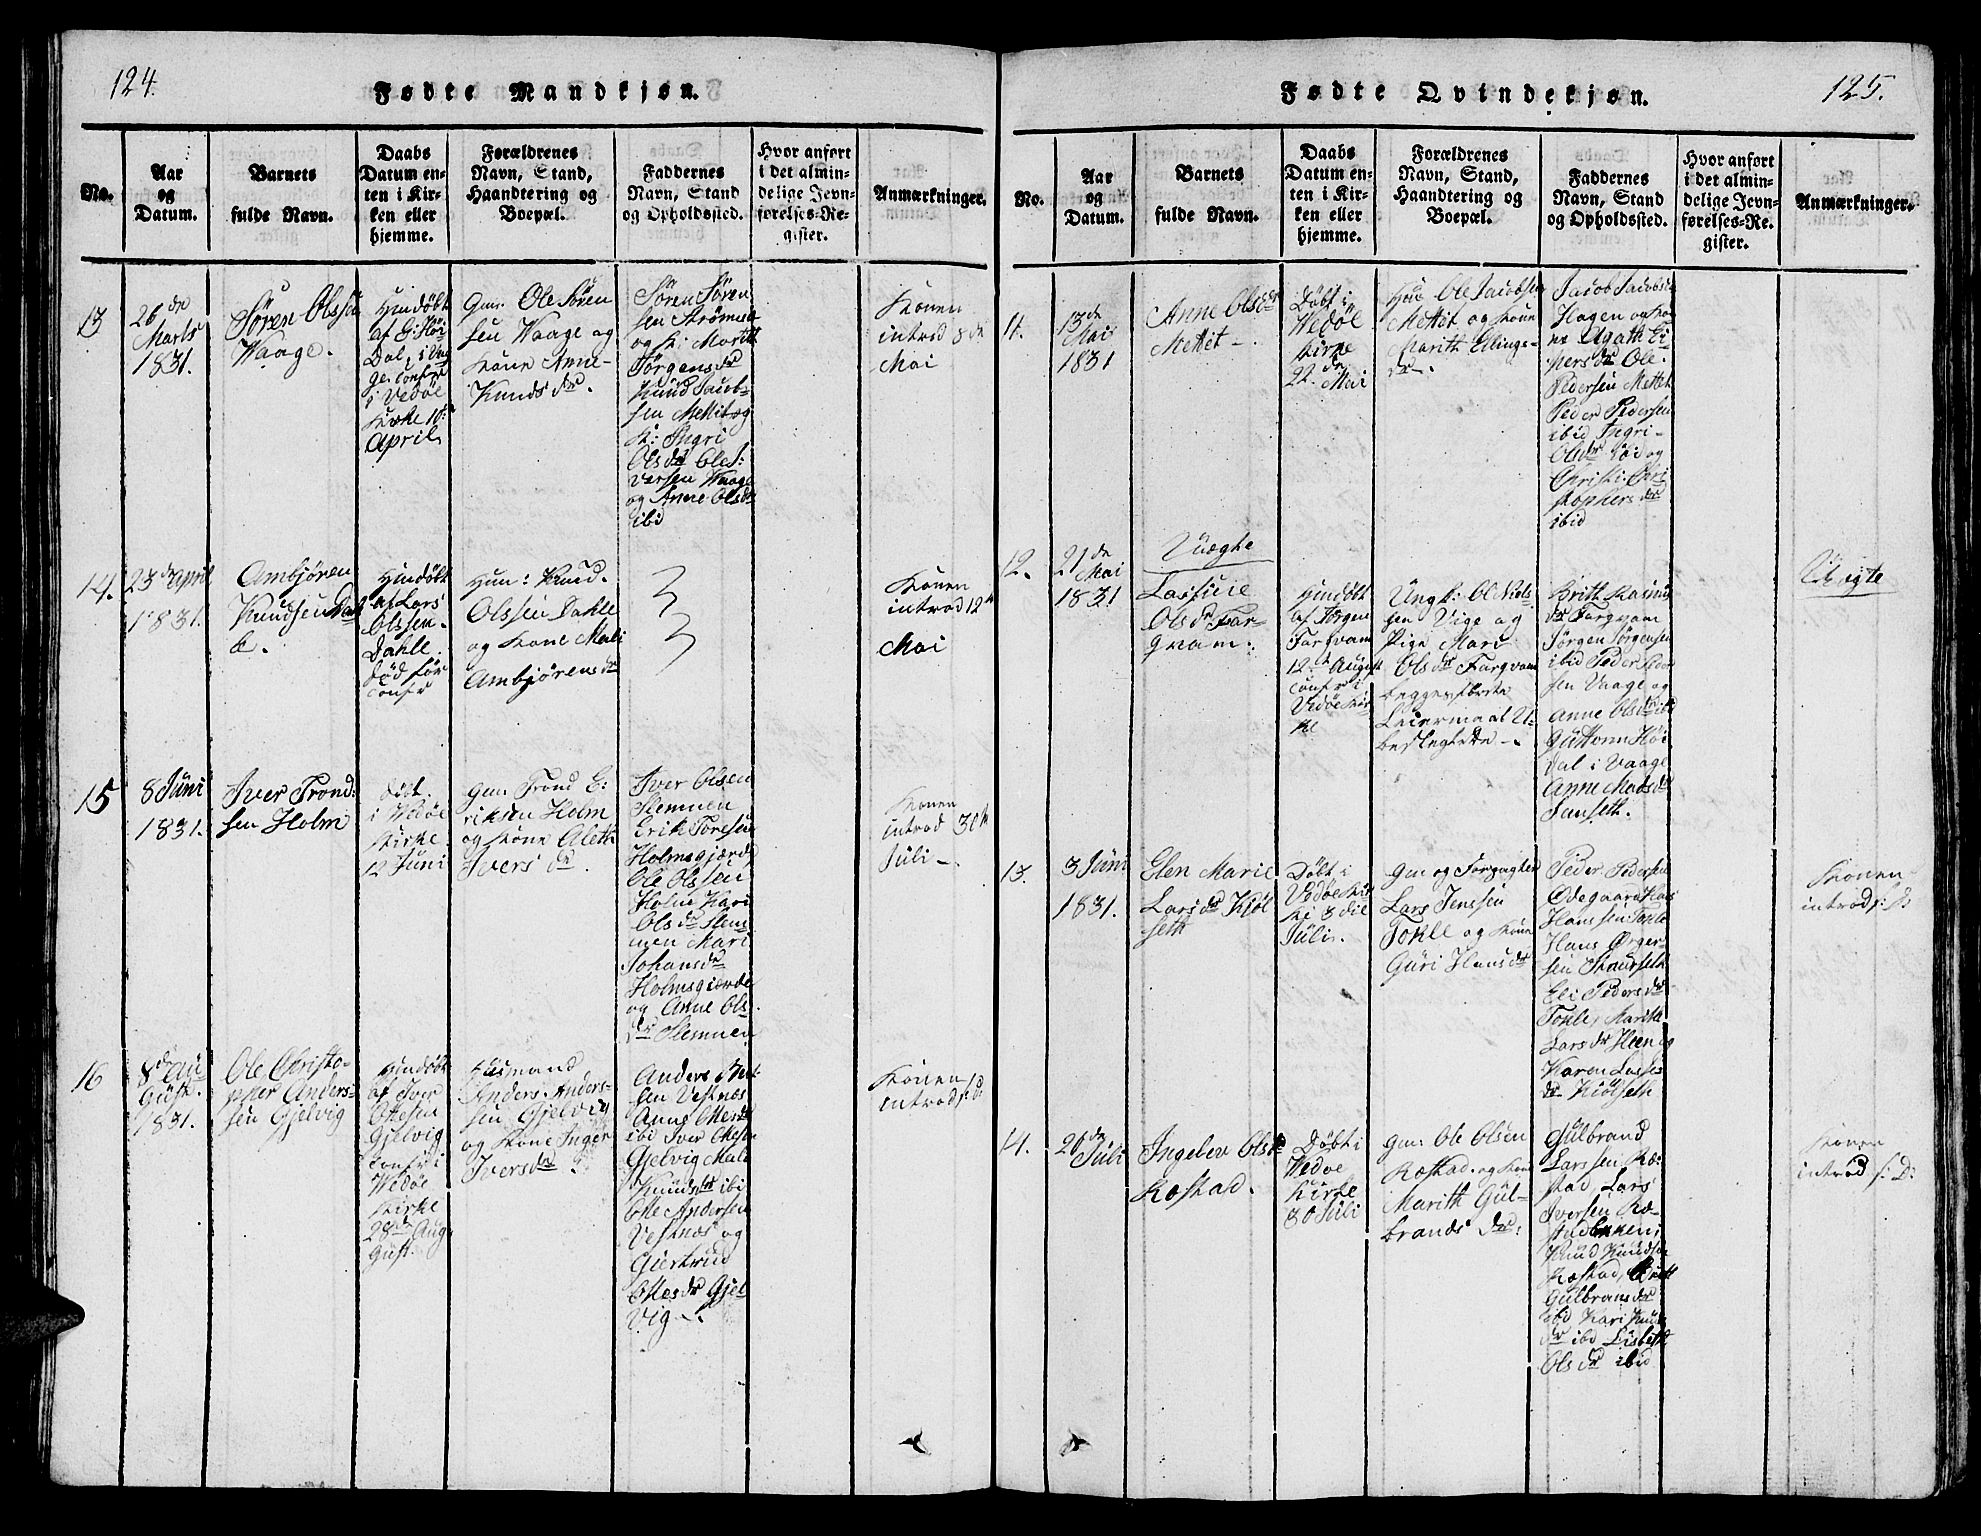 124.
Fødte Mandkjøn.
No.
Aar
og
Datum.
Barnets
fulde Navn.
Daabs
Datum en-
ten i Kir-
ken eller
hjemme.
Forældrenes
Navn, Stand,
Haandtering og
Boepæl.
Faddernes
Navn, Stand
og Opholdssted.
Hvor anført
i det almin-
delige Jevn-
førelses-Re-
gister.
Anmærkninger.
13
26de
Marts
1831.
Søren Olssen
Waage.
Hiemdøbt
af G. Høi
Dal, i Vaa
ge. Confr
i Vedøe
Kirke 10.
April
Gm. Ole Søren
sen Waage og
Kone Anne
Knudsdr.
Søren Søren
sen Strømmen
og K: Marith
Jørgensdr
Knud Jacob-
sen Mettet og
K: Ingri
Olsdr Ole I:
versen Waage
og Anne Olsdr
ibid
Konen
introd 8de
Mai
14.
23de April
1831.
Ambjøren
Knudsen Dah
le.
Hiemdøbt
af Lars
Olssen
Dahle.
Død før
Confr
Hum: Knud
Olssen Dahle
og Kone Mali
Ambjørensdr
Konen
introd 12te
Mai
15
8 Juni
1831.
Iver Trond-
sen Holm
Døbt
i Vedøe
Kirke
12 Juni
Gm. Trond E:
riksen Holm
og Kone Aleth
Iversdr
Iver Olsen
Stemmen
Erik Toresen
Holmsgjærde
Ole Olssen
Holm Kari
Olsdr Stem
men Mari
Johansdr
Holmsgjærde
og Anne Ols
dr Stemmen
Konen
introd 30te
Juli
16
8de Au
gust.
1831.
Ole Christo-
pher Anders-
sen Gjelvig
Hiemdøbt
af Iver
Ottesen
Gjelvig
Confr i
Wedøe
Kirke
28de Au
gust.
Huusmand
Anders Anders-
sen Gjelvig
og Kone Inger
Iversdr
Vestnæs
ibid Iver
Gjelvig Mali
Knudsdr ibi
Otte Andersen
Vestnæs og
Giertrud
Ottesdr Gjel
vig
Konen
introd s: D:
125.
Fødte Qvindekjøn.
No.
Aar
og
Datum.
Barnets
fulde Navn.
Daabs
Datum en-
ten i Kir-
ken eller
hjemme.
Forældrenes
Navn, Stand,
Haandtering og
Boepæl.
Faddernes
Navn, Stand
og Opholdssted.
Hvor anført
i det almin-
delige Jevn-
førelses-Re-
gister.
Anmærkninger.
11.
13de
Mai
1831
Anne Olsdr
Mettet
Døbt i
Wedøe
Kirke
22de Mai
Ole Jacobsen
Mettet og Kone
Marith Ellings-
dr.
Jacob Jacobsen
Hagen og Ko
ne Agath Ei
dr Ole
Pedersen Mettet
Peder Pedersen
ibid Ingri
Olsdr ibi og
Christi Chri
stophersdr
ibid
12.
21de
Mai
1831
Uægte
Olsdr Far-
qvam.
Hiemdøbt
af Jørgen
Fargvam
12te August
Confr i
Vedøe Kir
ke
Ungk: Ole Niels-
sen Vige og
Pige Mari
Olsdr Fargvam
begges første
Leiermaal U-
beslegtede
Britt Rasmus
dr Fargvam
Jørgen Jørgensen
ibid Peder Peder
sen Vaage og
Anne Olsdr ibi
Guttorm Høi
dal i Vaage
Anne Madsdr
Sanseth.
Uægte
13.
3 Juni
1831.
Elen Marie
Larsdr Kjøl
seth
Døbt i
Vedøe Kir
ke 3die
Juli.
Gm og Forpagter
Lars Jenssen
Tokle og Kone
Guri Hansdr
Peder Pedersen
Ødegaard Hans
Hanssen Tokle
Hans Ørger-
sen Staurseth
Eli Pedersdr
Tokle, Marith
Larsdr Heen og
Karen Lasses
dr Kjølseth
Konen
introd s: D:
14.
26de
Juli
Ingeber Olsdr
Røstad.
Døbt i
Wedøe
Kirke
30 Juli
Gm: Ole Olsen
Røstad. og Kone
Marith Gul-
brandsdr:
Gulbrand
Larssen Rø-
stad Lars
Iversen Rø-
stadbakken,
Knud Knudsen
Røstad, Britt
Gulbransdr
ibid Kari Knuds
dr ibid Lisbeth
Olsdr ibid
Konen
introd s: D: